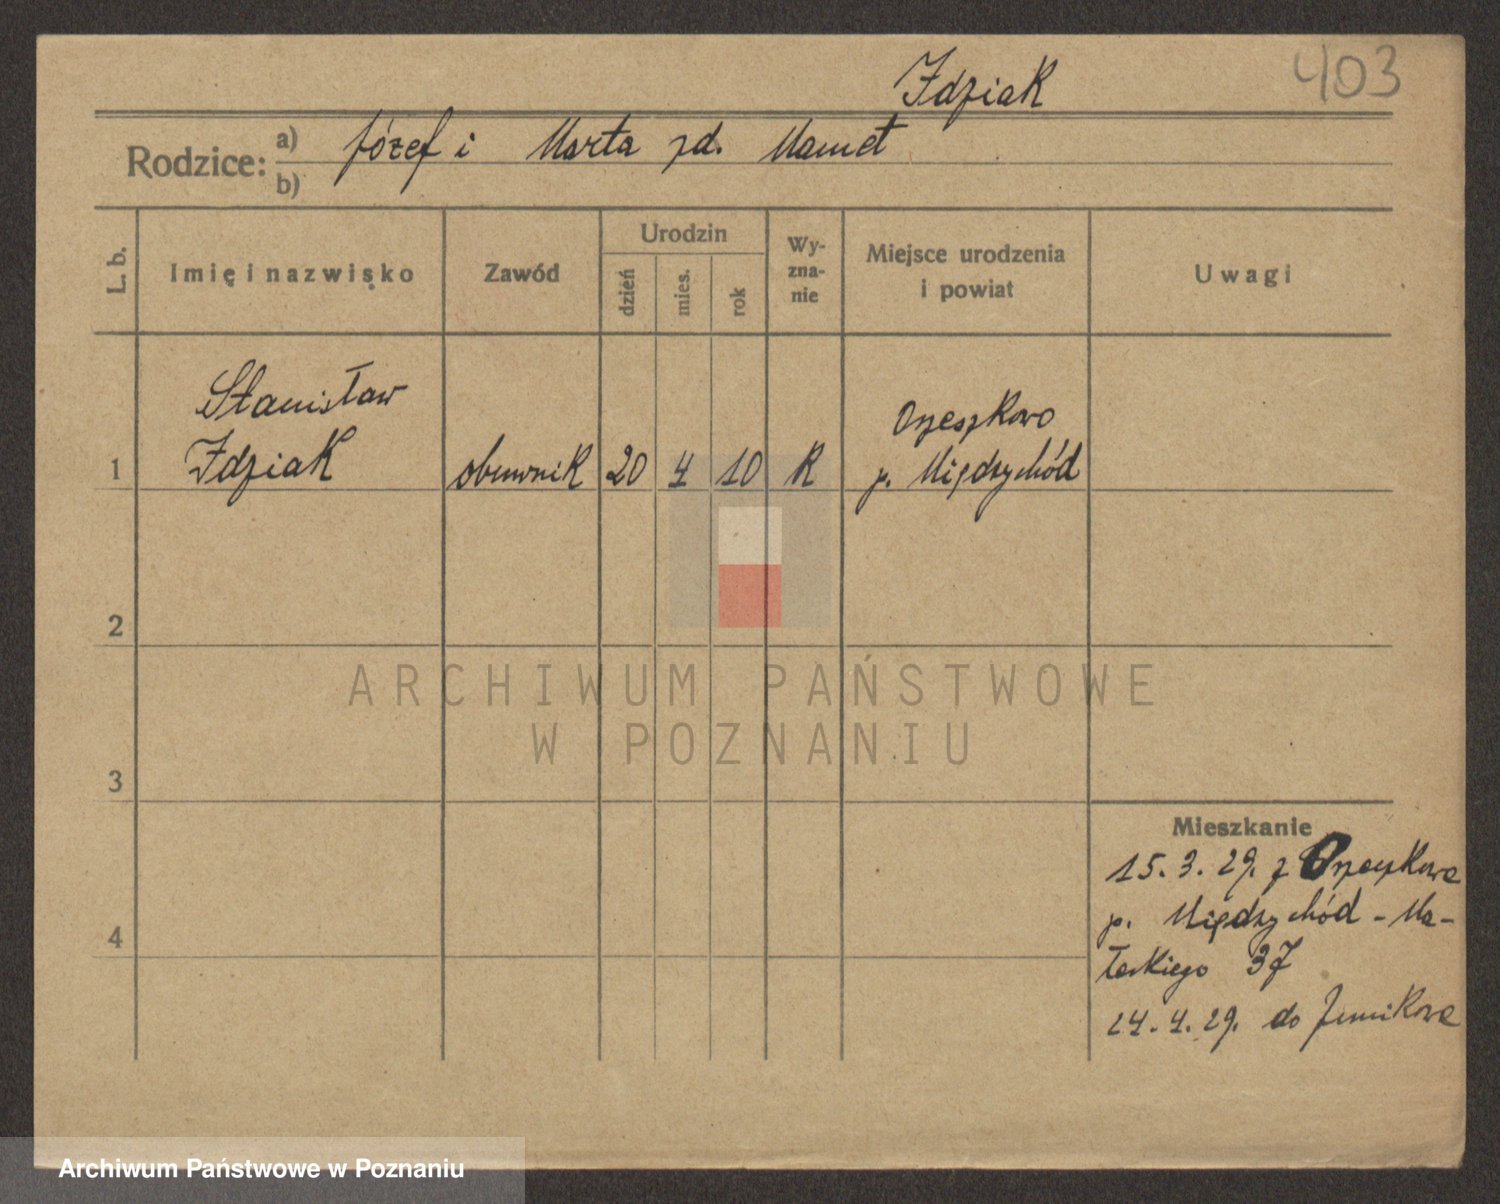 Idziak
403
Rodzice:
a) Józef i Marta zd. Mamet
b)
L. b.
Imię i nazwisko
Zawód
Urodzin
dzień
mies.
rok
Wy-
zna-
nie
Miejsce urodzenia
i powiat
Uwagi
Stanisław
Idziak
Orzeszkowo
1 obuwnik 20 4 10 R p. Międzychód
2
3
4
ARCHIWUM PAŃSTWOWE
W POZNANIU
Mieszkanie
15.3.29. z Orzeszkowa
p. Międzychód - Ma-
łeckiego 37
24.4.29. do Junikowa
Archiwum Państwowe w Poznaniu